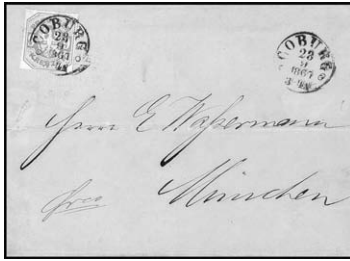 COBURG
23
9
1867
COBURG
23
9
1867
Herrn E. Waßermann
München